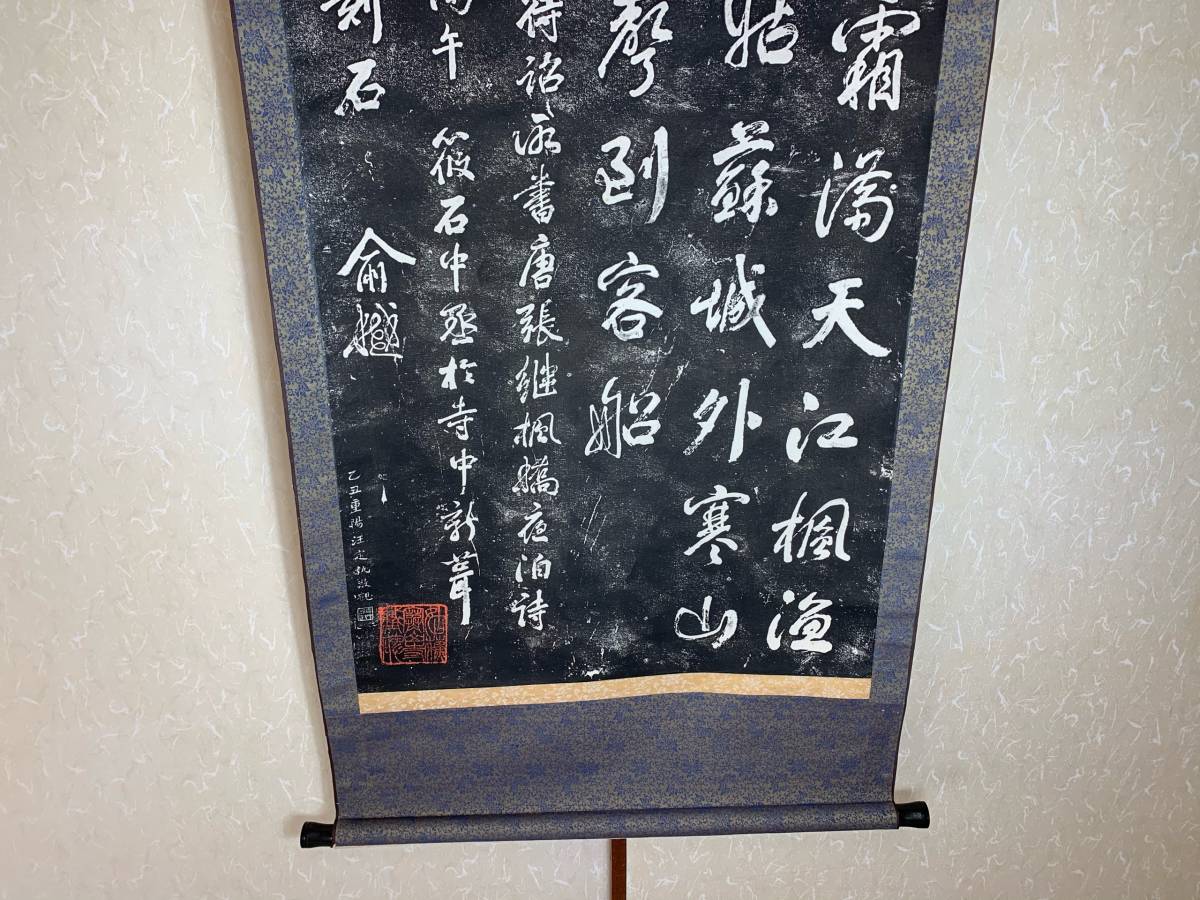 霜滿天江楓漁
姑蘇城外寒山
聲到客船
待詔所書唐張繼楓橋夜泊詩
丙午 筱石中丞於寺中新葺
刻石 俞樾
乙丑重陽汪定